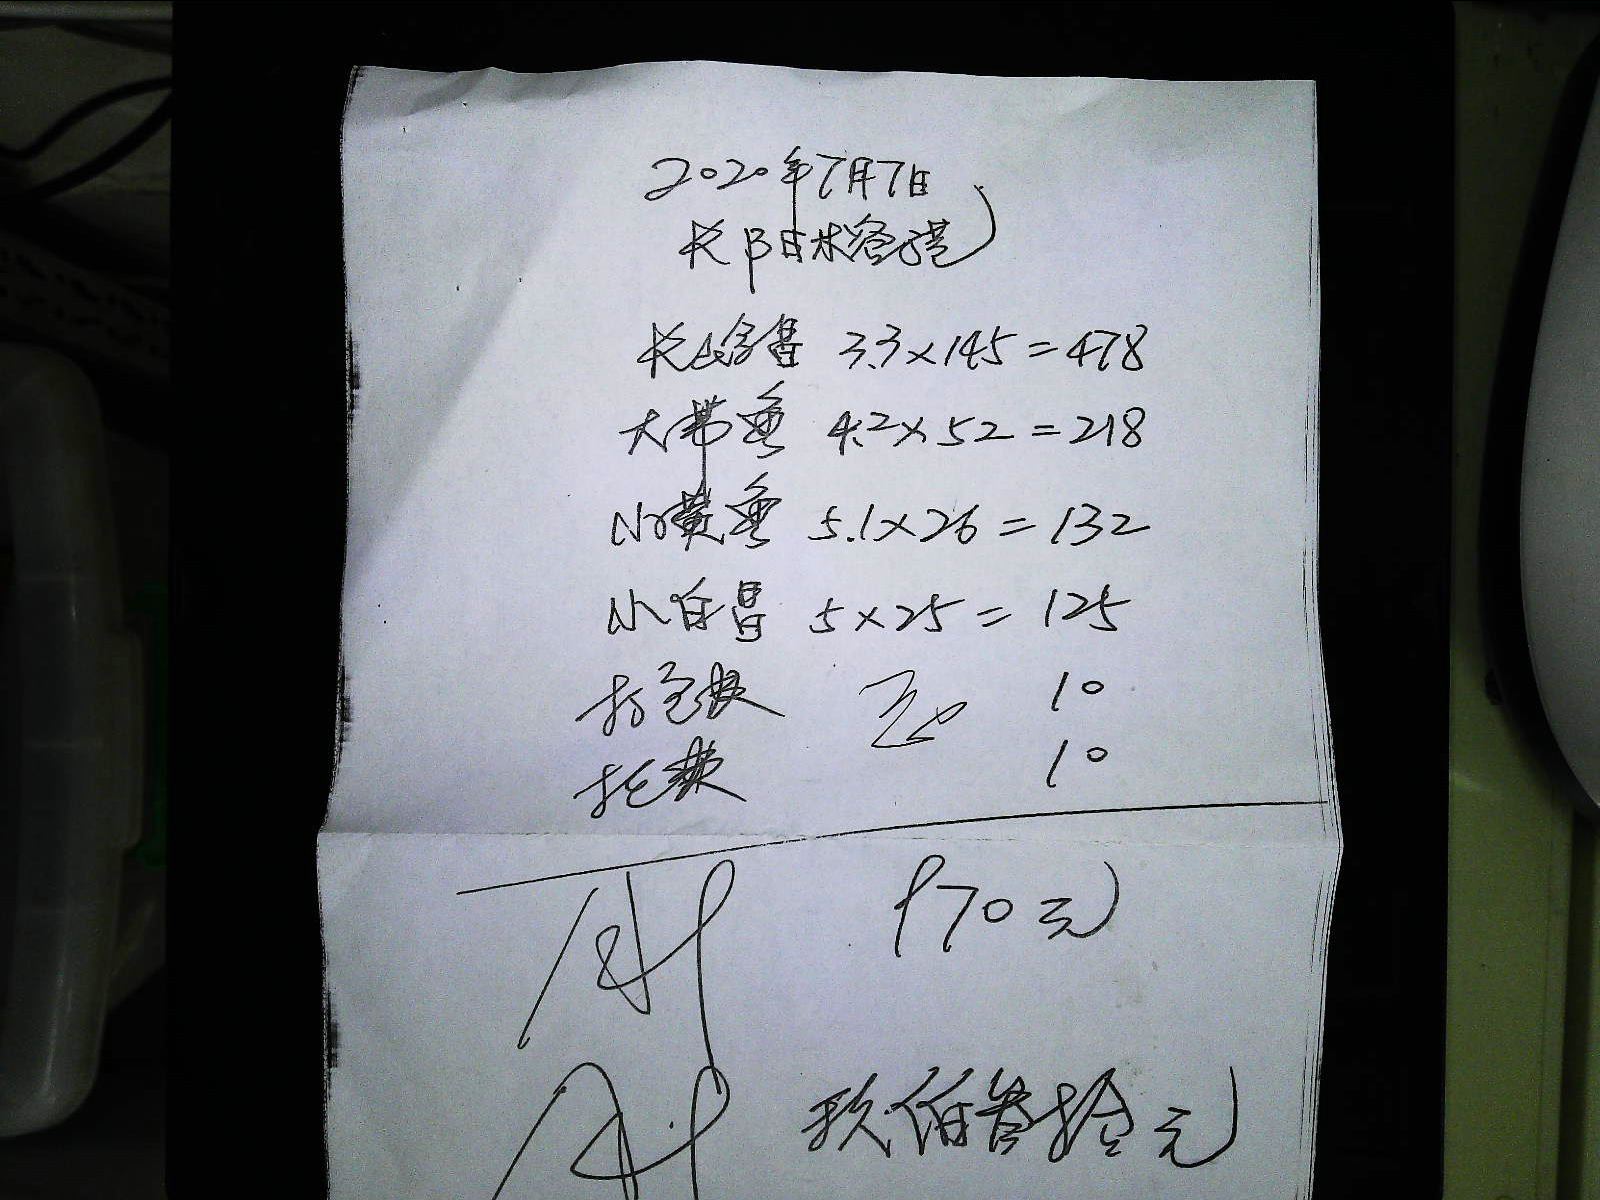 2020年7月7日
长阳水
3.3×145=478
大带鱼 4.2×52=218
小黄鱼 5.1×26=132
小白昌 5×25=125
打包费 10
托费 10
970元
玖佰 拾元